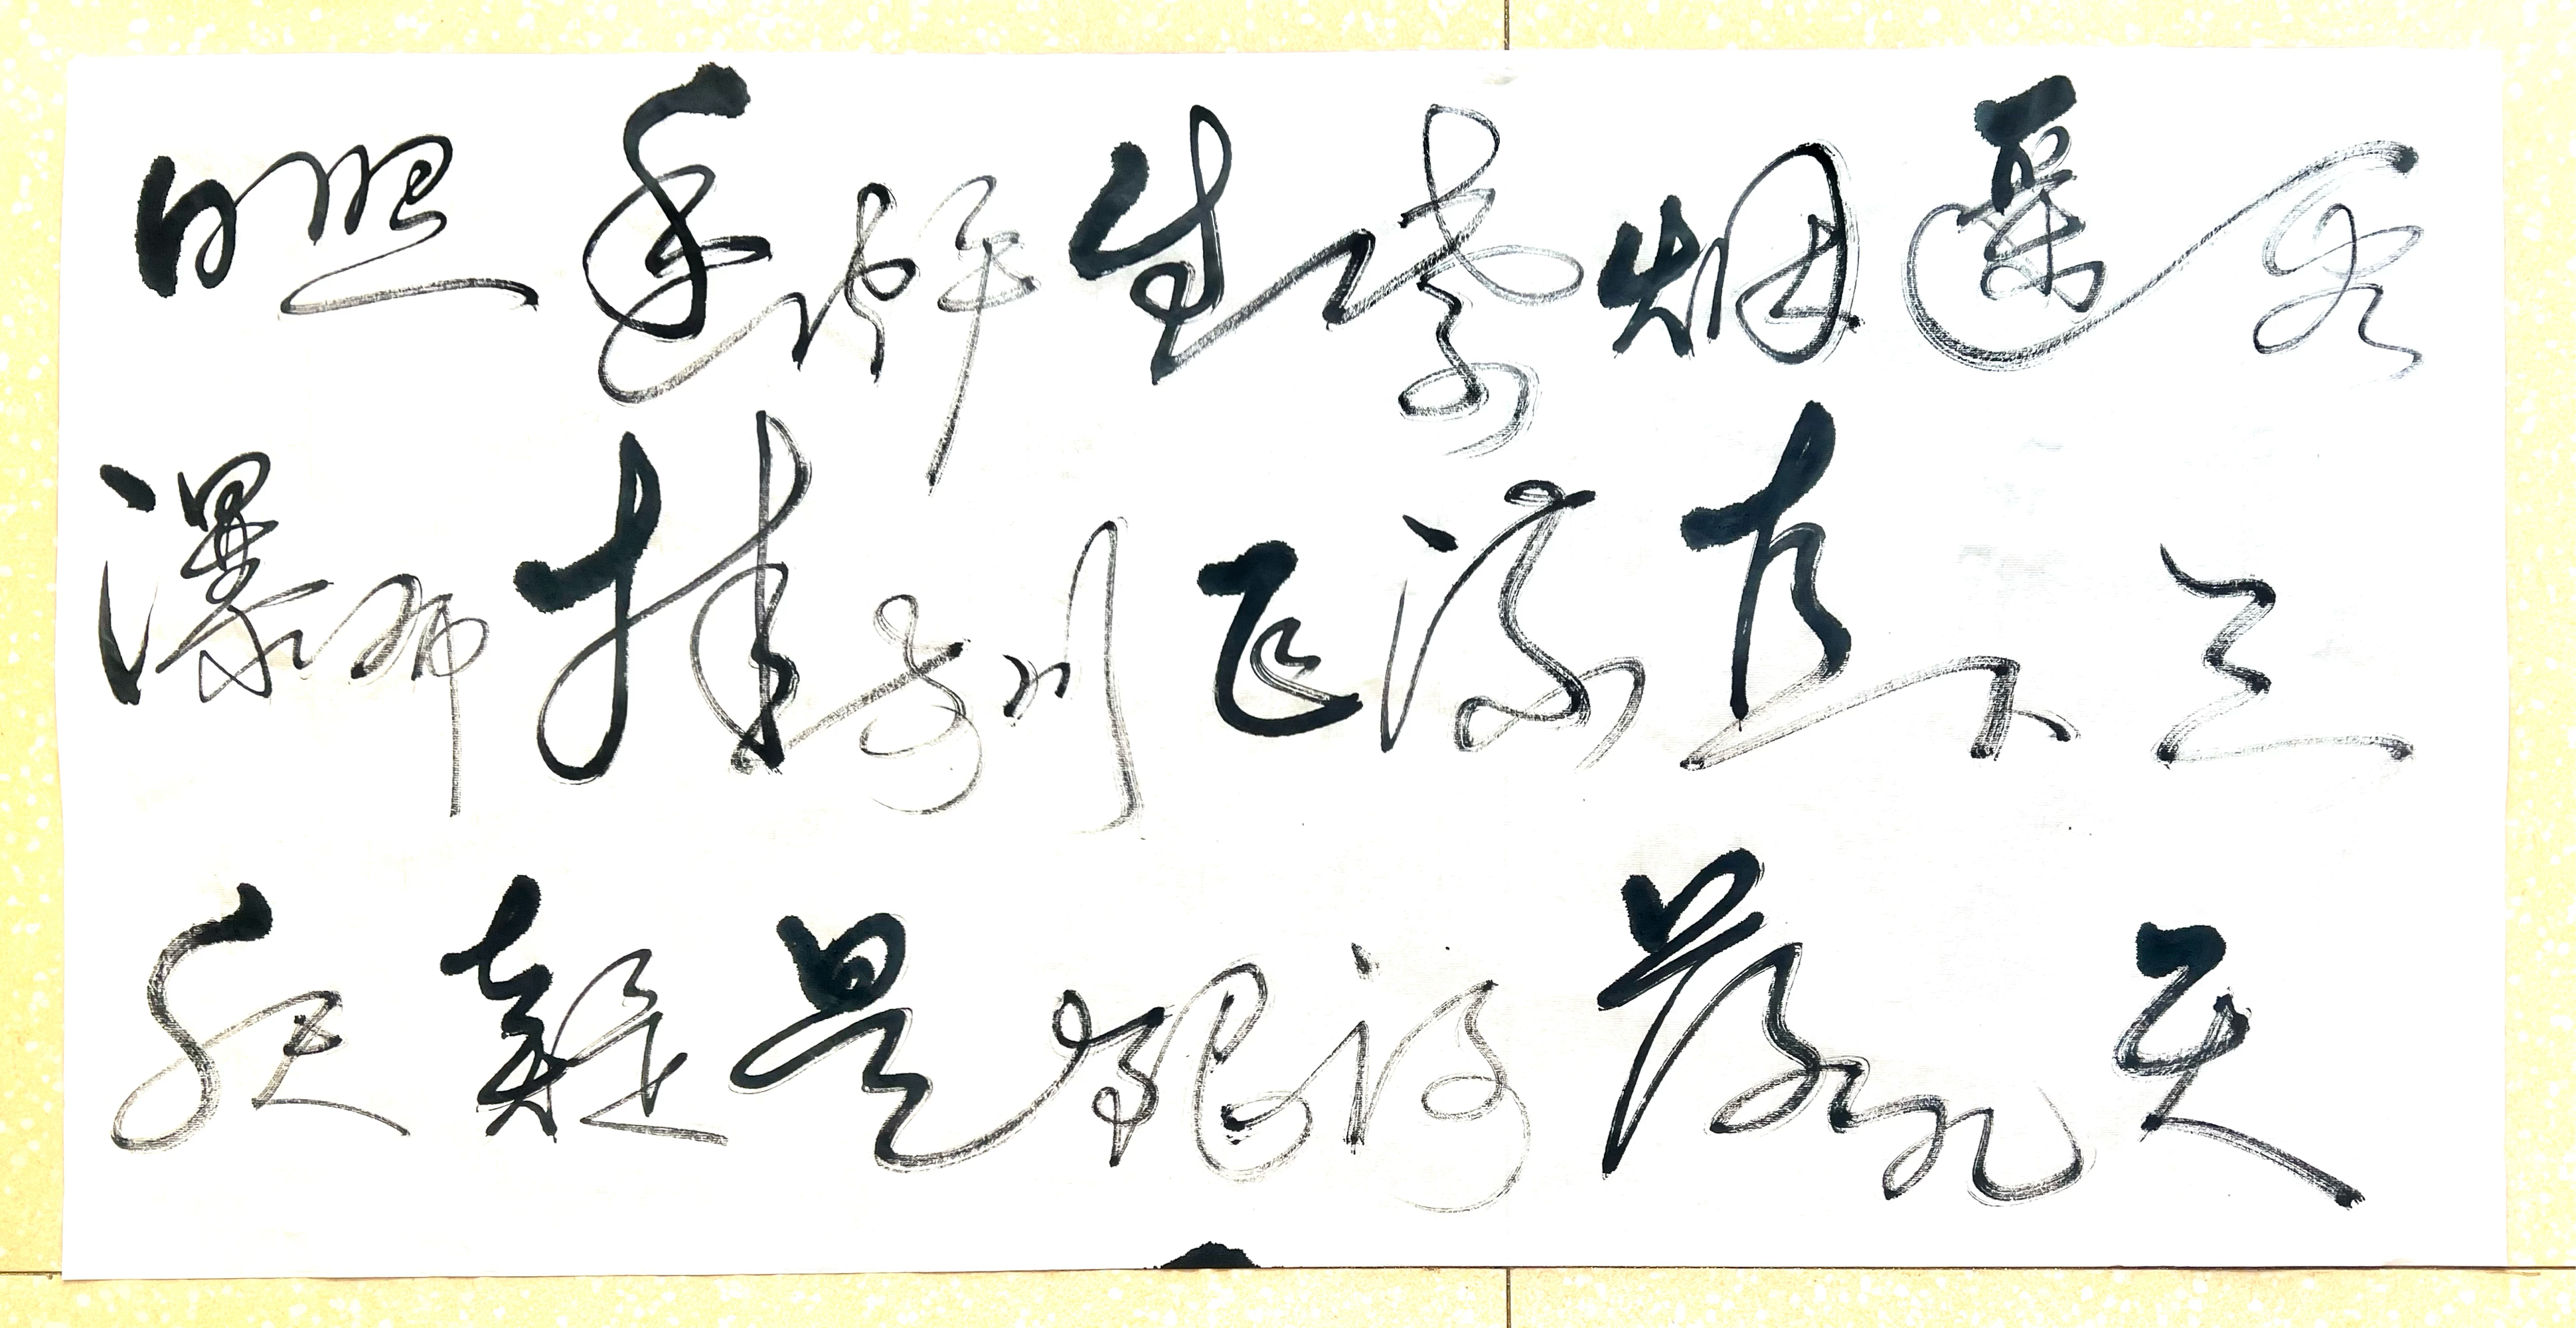 日照香炉生紫烟遥看
瀑布挂前川飞流直下三
千尺疑是银河落九天